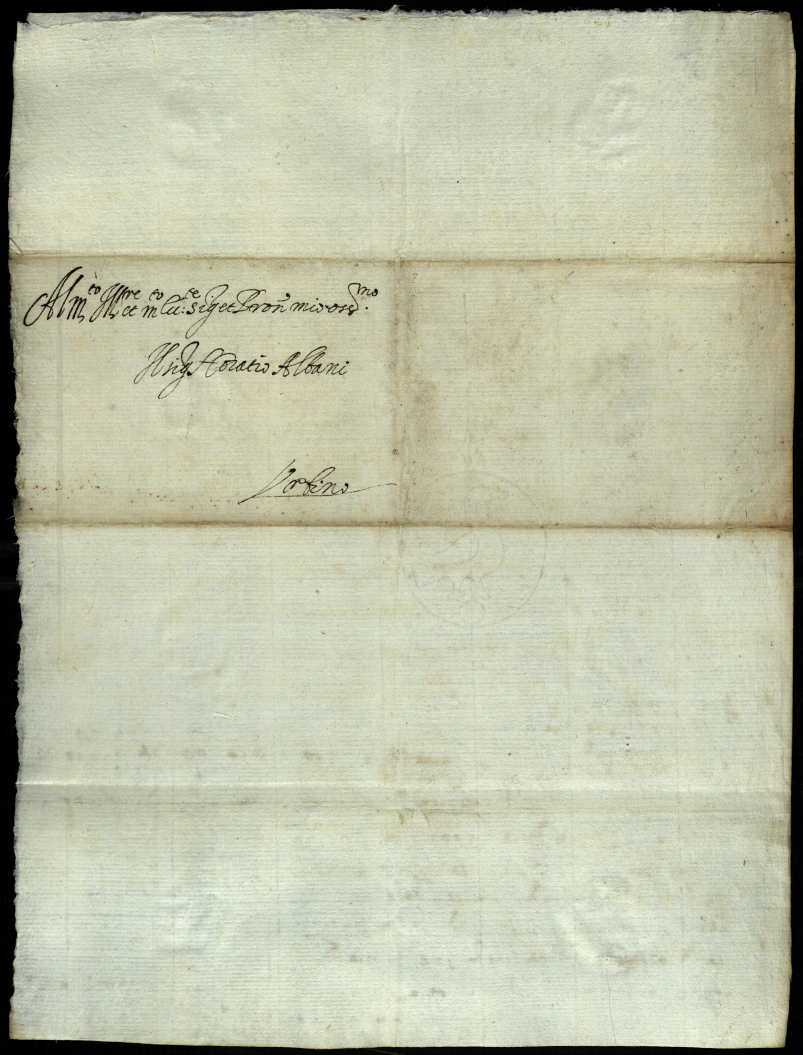 Al m.to Ill.re et m.to Ecc.te Sig.r et Pron mio oss.mo
Il Sig.r Horatio Albani
Vrbino